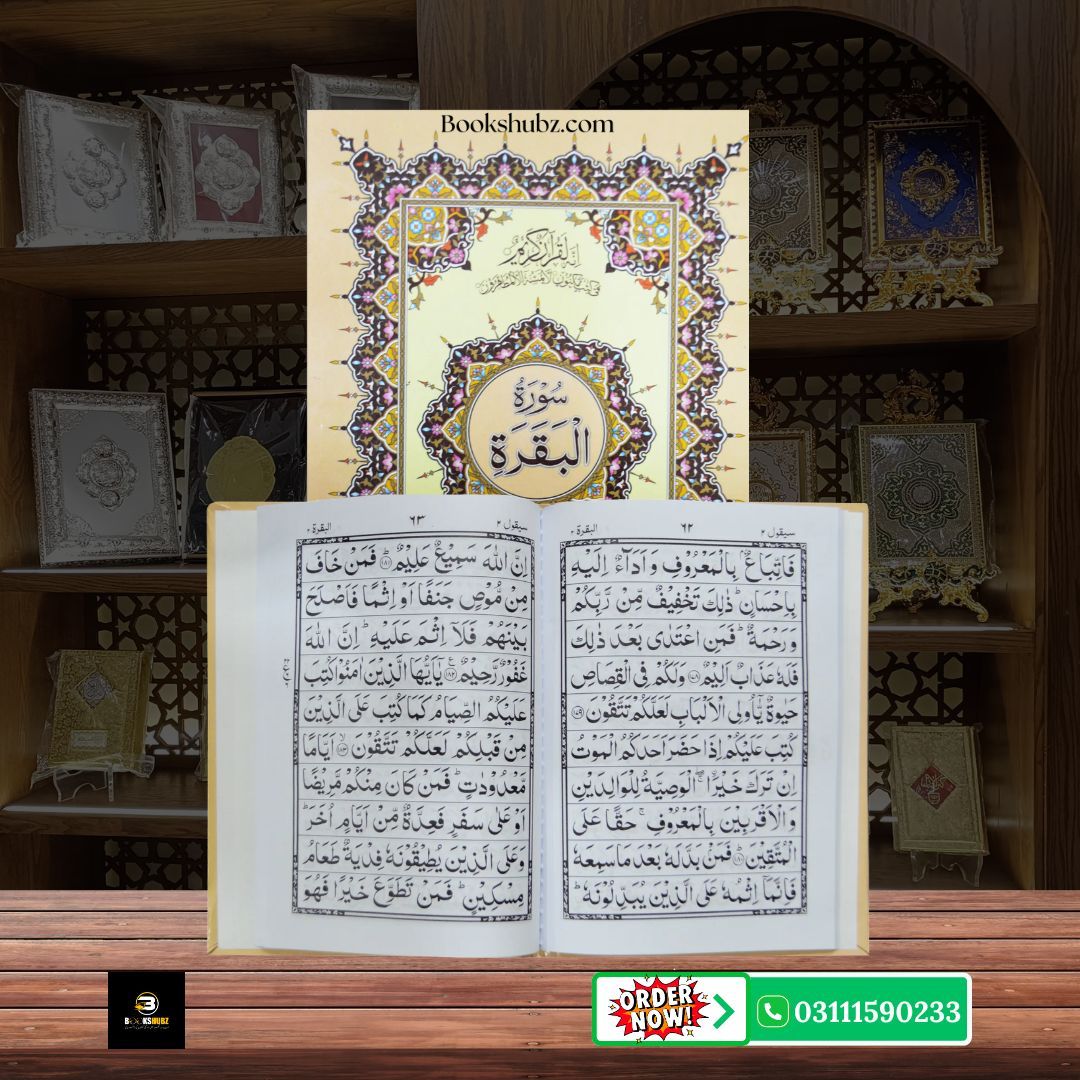 Bookshubz.com
اِنَّهٗ لَقُرْاٰنٌ كَرِيْمٌ
سُوْرَةُ
الْبَقَرَةِ
سيقول ٢
٦٢
البقرة ٢
فَاتِّبَاعٌۢ بِالْمَعْرُوْفِ وَاَدَآءٌ اِلَيْهِ
بِاِحْسَانٍ ؕ ذٰلِكَ تَخْفِيْفٌ مِّنْ رَّبِّكُمْ
وَرَحْمَةٌ ؕ فَمَنِ اعْتَدٰى بَعْدَ ذٰلِكَ
فَلَهٗ عَذَابٌ اَلِيْمٌ ﴿۱۷۸﴾ وَلَكُمْ فِى الْقِصَاصِ
حَيٰوةٌ يّٰۤاُولِى الْاَلْبَابِ لَعَلَّكُمْ تَتَّقُوْنَ ﴿۱۷۹﴾
كُتِبَ عَلَيْكُمْ اِذَا حَضَرَ اَحَدَكُمُ الْمَوْتُ
اِنْ تَرَكَ خَيْرًا ۖۚ الْوَصِيَّةُ لِلْوَالِدَيْنِ
وَالْاَقْرَبِيْنَ بِالْمَعْرُوْفِ ۚ حَقًّا عَلَى
الْمُتَّقِيْنَ ﴿۱۸۰﴾ فَمَنْۢ بَدَّلَهٗ بَعْدَ مَا سَمِعَهٗ
فَاِنَّمَاۤ اِثْمُهٗ عَلَى الَّذِيْنَ يُبَدِّلُوْنَهٗ ؕ
سيقول ٢
٦٣
البقرة ٢
اِنَّ اللّٰهَ سَمِيْعٌ عَلِيْمٌ ﴿۱۸۱﴾ فَمَنْ خَافَ
مِنْ مُّوْصٍ جَنَفًا اَوْ اِثْمًا فَاَصْلَحَ
بَيْنَهُمْ فَلَاۤ اِثْمَ عَلَيْهِ ؕ اِنَّ اللّٰهَ
غَفُوْرٌ رَّحِيْمٌ ﴿۱۸۲﴾ يٰۤاَيُّهَا الَّذِيْنَ اٰمَنُوْا كُتِبَ
عَلَيْكُمُ الصِّيَامُ كَمَا كُتِبَ عَلَى الَّذِيْنَ
مِنْ قَبْلِكُمْ لَعَلَّكُمْ تَتَّقُوْنَ ﴿۱۸۳﴾ اَيَّامًا
مَّعْدُوْدٰتٍ ؕ فَمَنْ كَانَ مِنْكُمْ مَّرِيْضًا
اَوْ عَلٰى سَفَرٍ فَعِدَّةٌ مِّنْ اَيَّامٍ اُخَرَ ؕ
وَعَلَى الَّذِيْنَ يُطِيْقُوْنَهٗ فِدْيَةٌ طَعَامُ
مِسْكِيْنٍ ؕ فَمَنْ تَطَوَّعَ خَيْرًا فَهُوَ
BOOKSHUBZ
ORDER
NOW!
03111590233